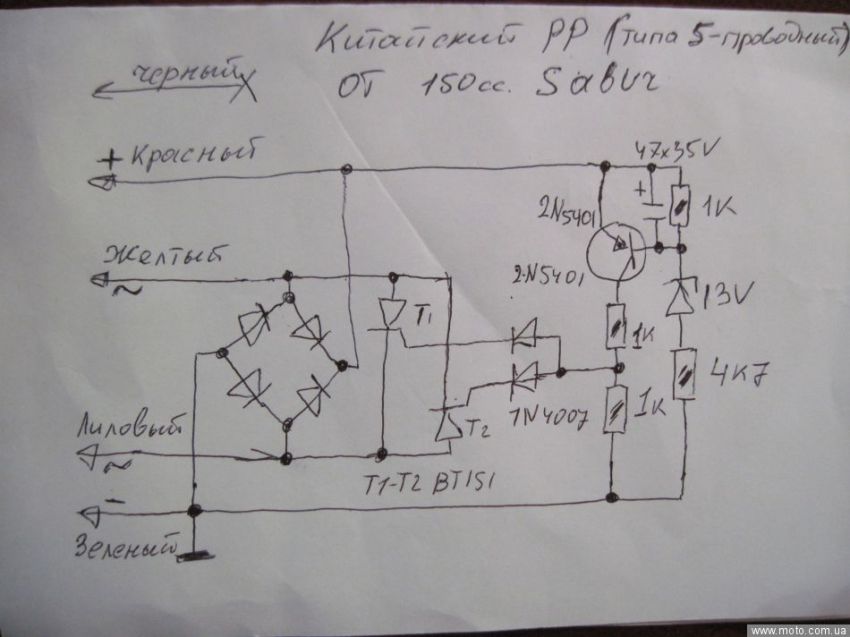 Китайский РР (типа 5-проводный)
ОТ 150cc. Sabur
черный
+ Красный
47x35V
+
1K
2N5401
Желтый
~
2N5401
13V
T1
1K
4K7
1N4007
1K
Лиловый
~
T2
T1-T2 BT151
-
Зеленый
www.moto.com.ua